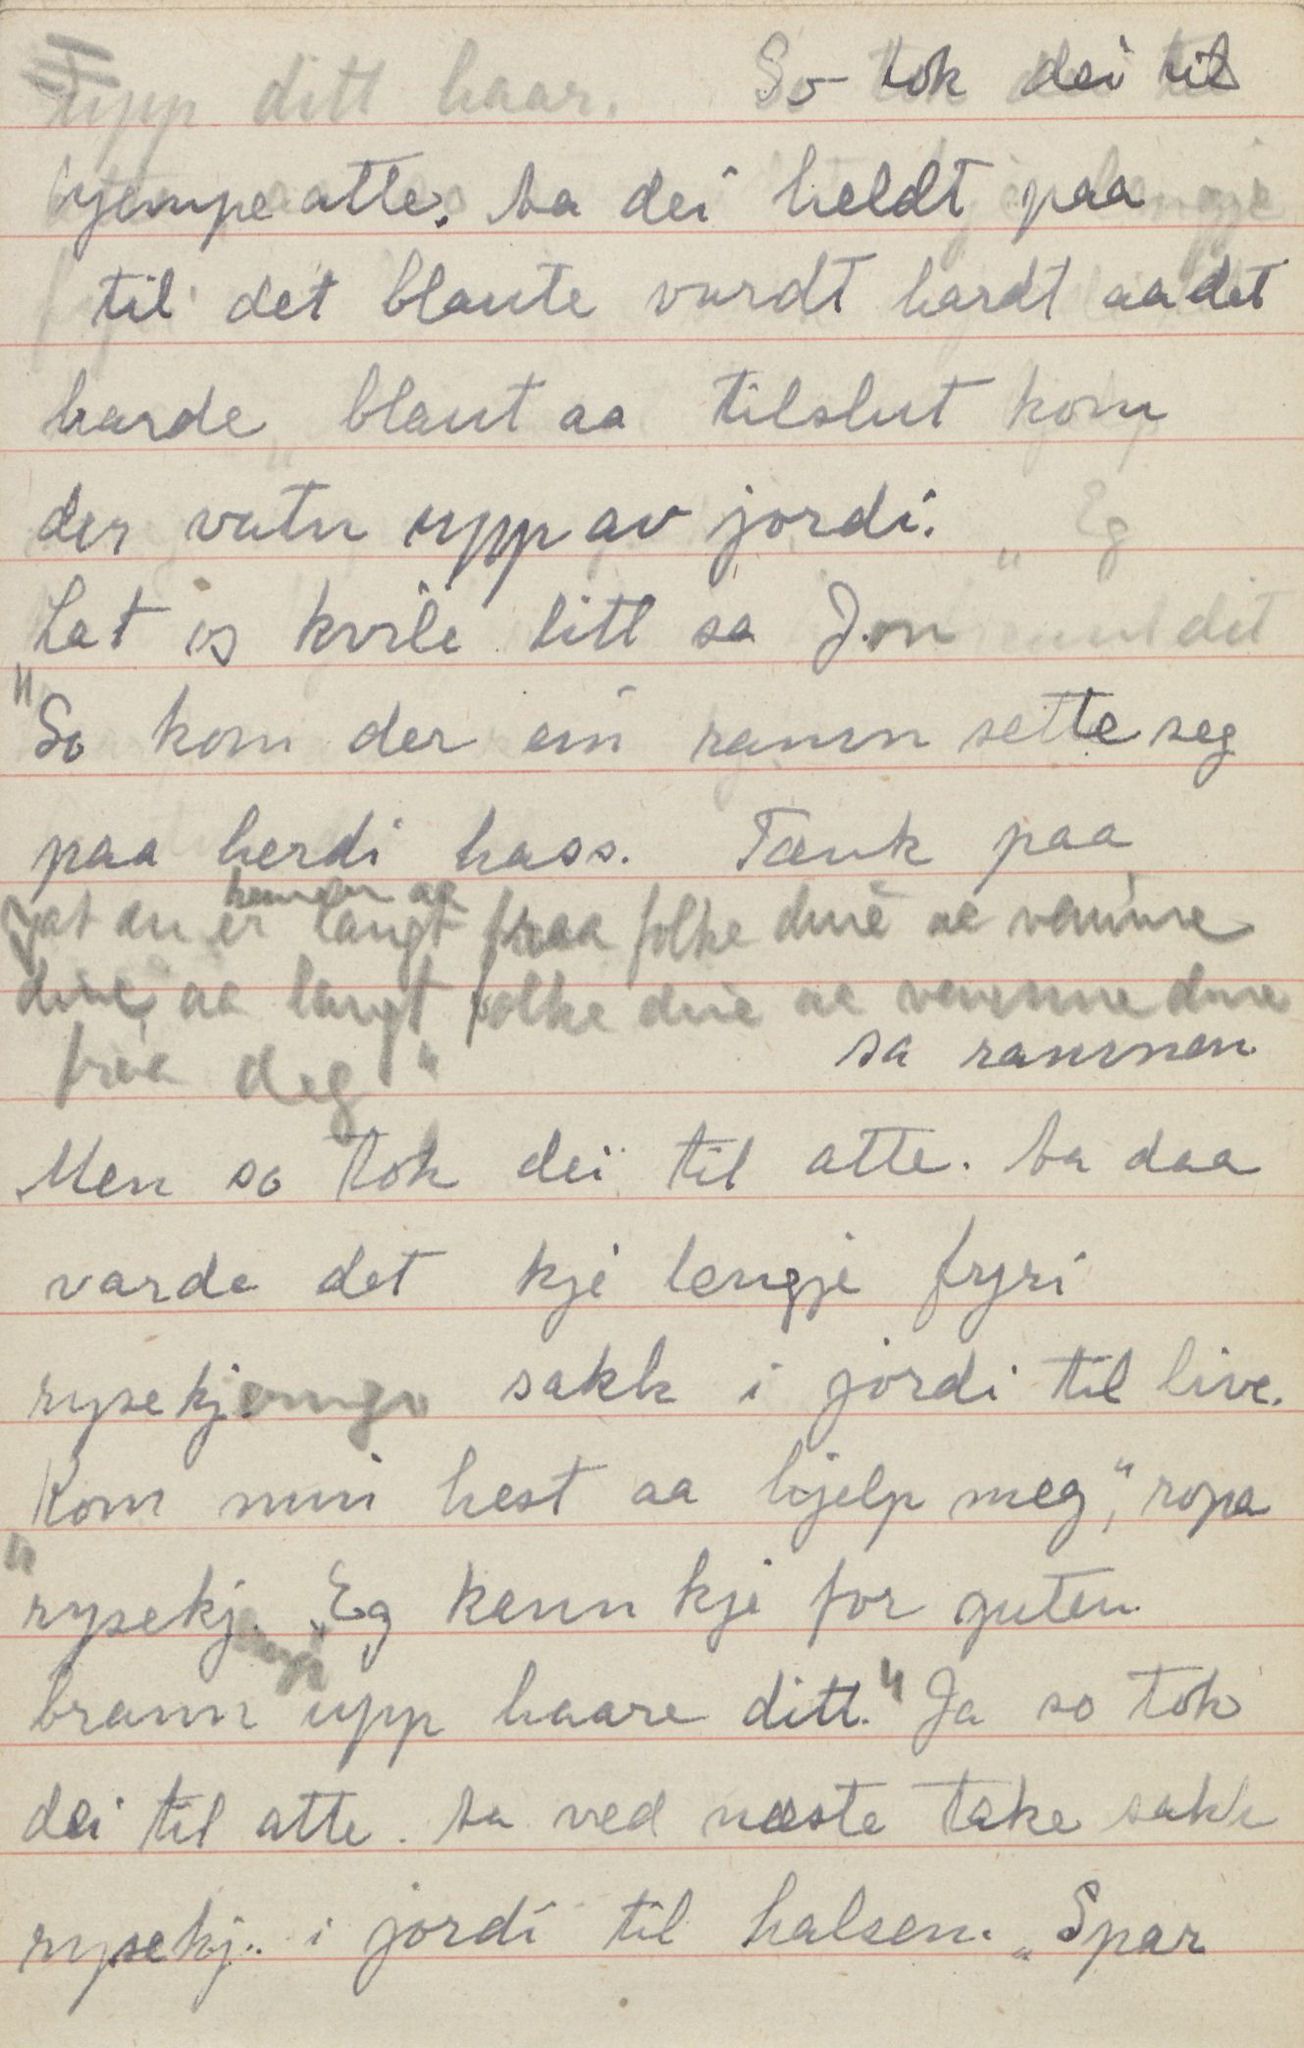 upp ditt haar. So tok dei til
kjempe atte. Aa dei heldt paa
til det blaute vardt hardt aa det
harde blaut aa tilslut kom
der vatn upp av jordi.
Lat os kvile litt sa Jon
"So kom der ein ramn sette seg
paa herdi hass. Tænk paa
at du er langt fraa folke dine aa veninne
dine, aa langt folke dine aa venninne dine
fraa deg" sa ramnen
Men so tok dei til atte. Aa daa
varde det kje lengje fyri
rysekjempa sakk i jordi til live.
"Kom min hest aa hjelp meg," ropa
rysekj. "Eg kann kje for guten
brann upp haare ditt." Ja so tok
dei til atte. Aa ved næste take sakk
rysekj. i jordi til halsen. "Spar